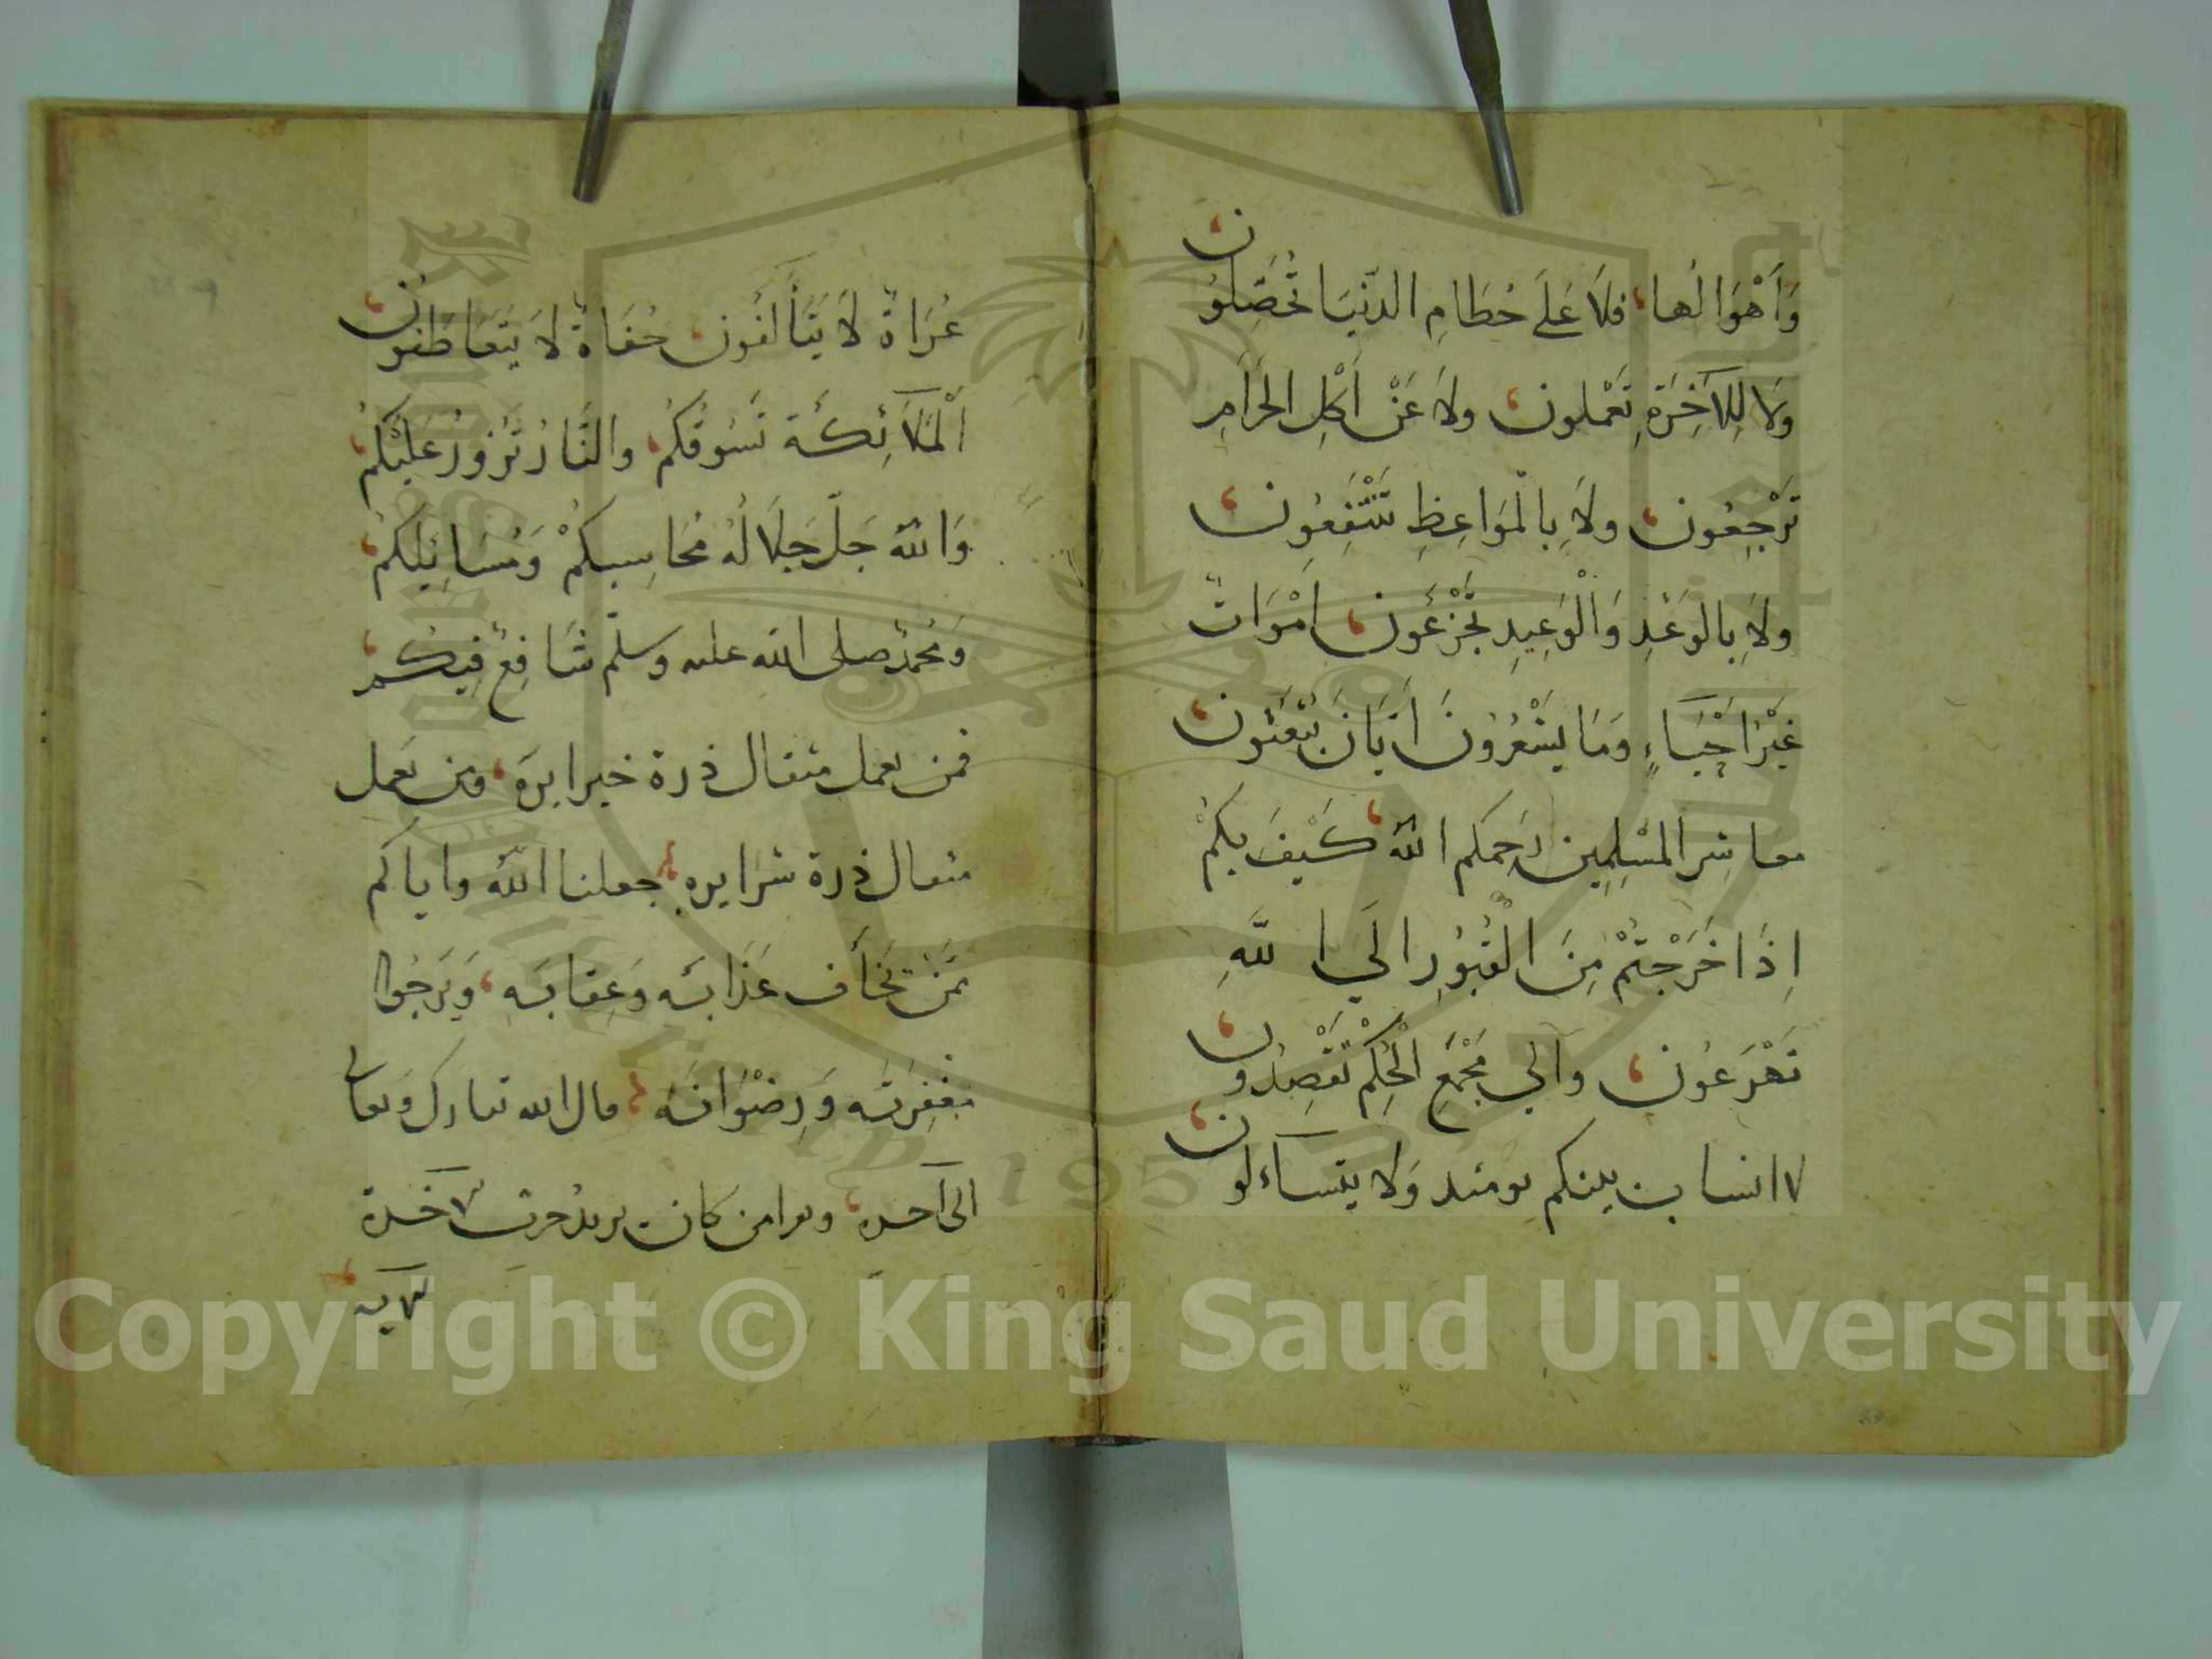 وَأَهْوَالُها، فلاَ عَلَى حُطَامِ الدُّنْيَا تُحَصِّلُون
وَلا لِلآخِرَةِ تَعْمَلون، ولاَ عَنْ أَكْلِ الحَرَامِ
تَرْجِعُون، ولاَ بِالْمَوَاعِظِ تَنْتَفِعُون،
ولاَ بِالوَعْدِ وَالْوَعِيدِ تَجْزَعُون، اَمْوَاتٌ
غَيْرُ اَحْيَاءٍ وَمَا يَشْعُرُونَ اَيَّانَ يُبْعَثُون،
معاشِرَ المُسْلِمِين رَحمكم اللهُ، كَيْفَ بِكُمْ
اِذَا خَرَجْتُمْ مِنَ الْقُبُورِ الَي اللَّهِ
تَهْرَعُون، والي مَجْمَعِ الْحُكْمِ تُقْصَدُون،
لا انساب بينكم يومئذ وَلا يتساءلون،
عُرَاةٌ لاَ يَتَأَلَّفُون، حُفَاةٌ لاَ يَتَعَاطَفُون،
اَلْمَلاَئِكَة تَسُوقُكُم، والنَّارُ تَزْفُرُ عَلَيْكُم،
وَاللهُ جَلَّ جَلاَلُهُ مُحَاسِبكُمْ وَمُسَائِلكُم،
وَمُحمدٌ صلى الله عليه وسلّم شَافِعٌ فِيكُم،
فمن يعمل مثقال ذرة خيرا يره، ومن يَعمل
مثقال ذرة شرا يره، جعلنا اللهُ واياكم
مِمَّنْ يَخَافُ عَذَابَه وَعِقابَه، وَيَرجُوا
مَغْفِرَتَه وَرِضْوَانَه، قال الله تبارك وَتعالى
الى آخره، وىقرا من كان يريدُ حرث الآخرة
الآيه
Copyright © King Saud University